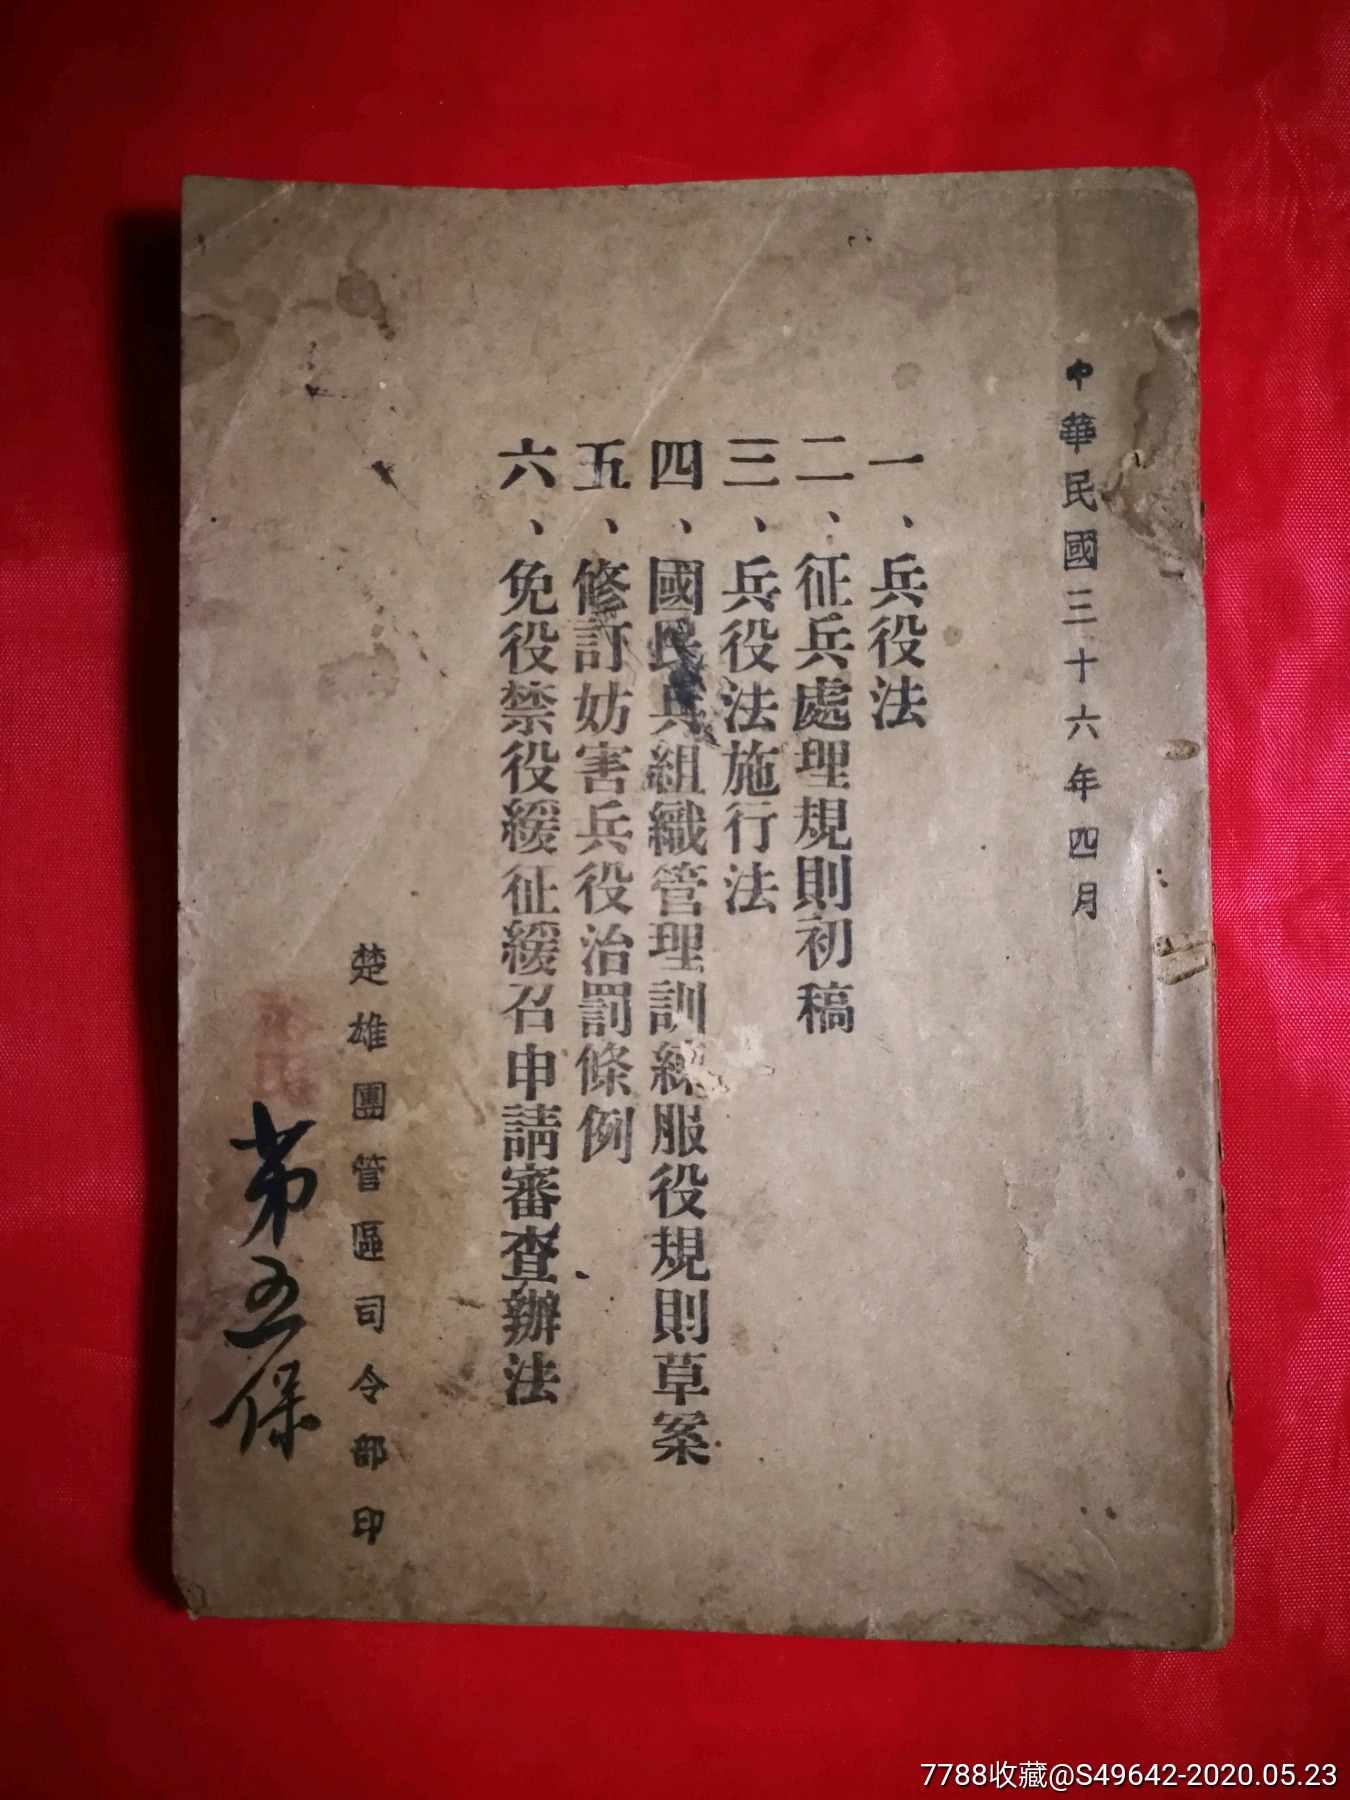 中華民國三十六年四月
一、兵役法
二、征兵處理規則初稿
三、兵役法施行法
四、國民兵組織管理訓練服役規則草案
五、修訂妨害兵役治罰條例
六、免役禁役緩征緩召申請審查辦法
楚雄團管區司令部印
第五保
7788收藏@S49642-2020.05.23